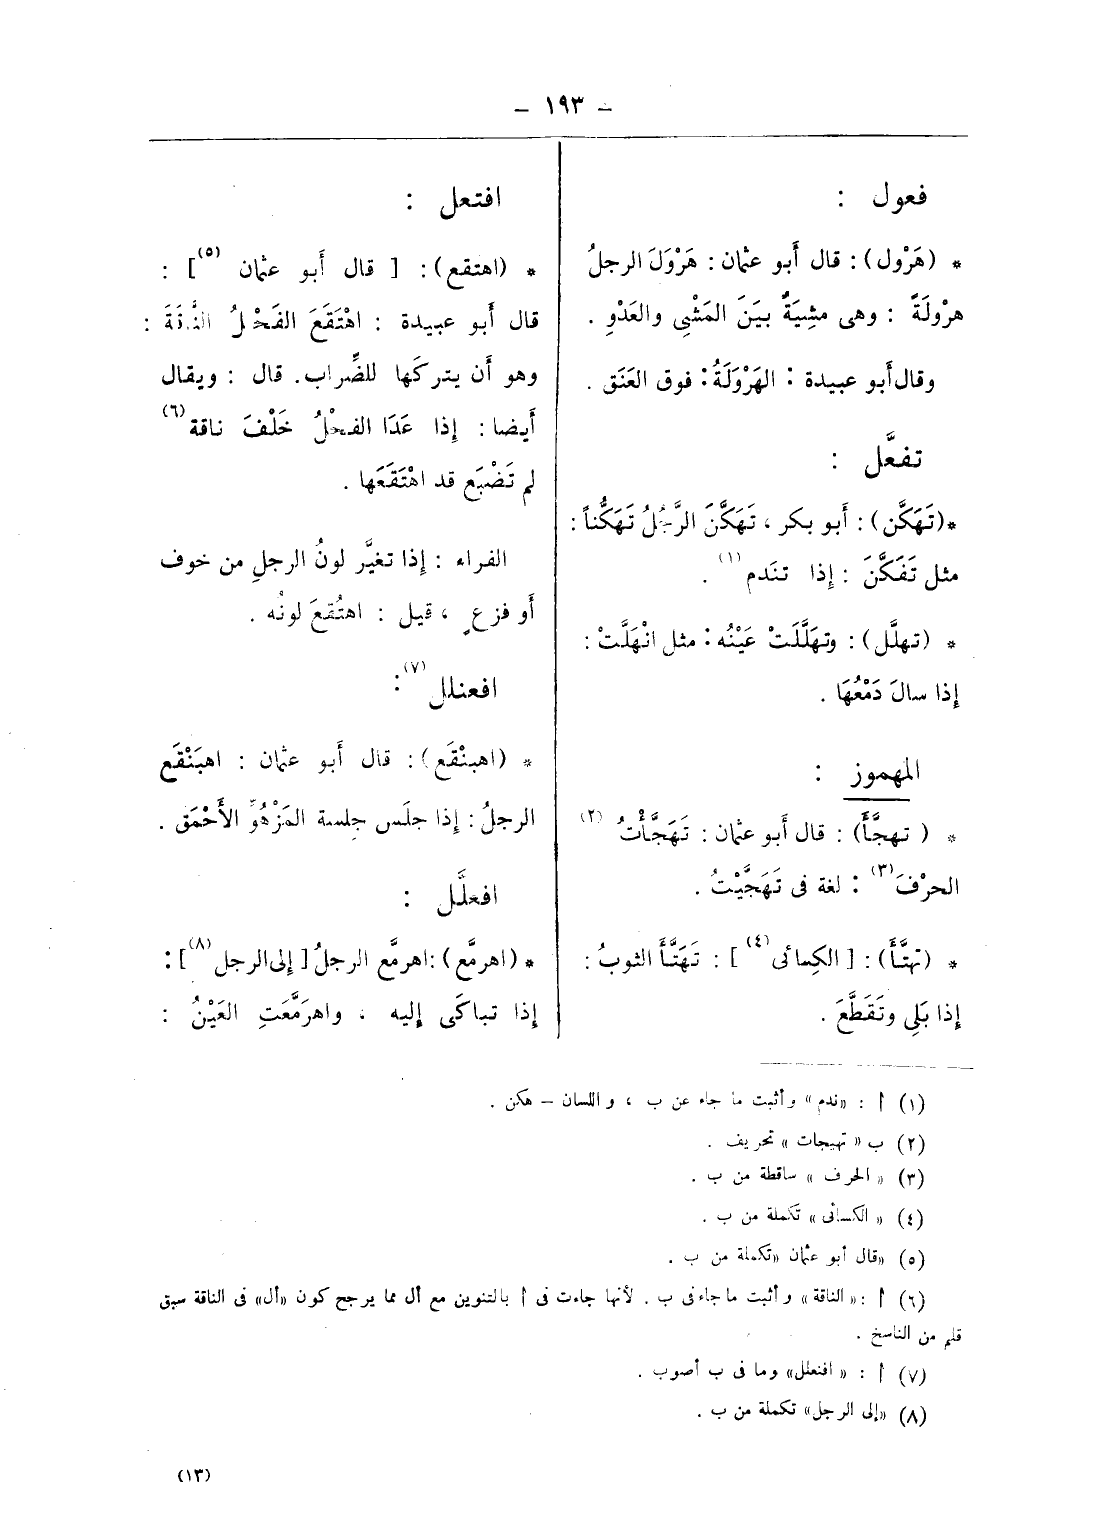 – ١٩٣ –
فعول :
* (هَرْول) : قال أَبو عثمان : هَرْوَلَ الرجلُ
هرْولَةً : وهى مشِيَةٌ بينَ المَشْىِ والعَدْوِ .
وقال أَبو عبيدة : الهَرْوَلَةُ : فوق العَنَق .
تفعَّل :
*(تَهَكَّن) : أَبو بكر ، تَهَكَّنَ الرَّجُلُ تَهَكُّناً :
مثل تَفَكَّنَ : إذا تندم (١) .
* (تهلَّل) : وتهَلَّلَتْ عَيْنُه : مثل انْهَلَّتْ :
إذا سالَ دَمْعُهَا .
المهموز :
* ( تهجَّأَ) : قال أَبو عثمان : تَهَجَّأْتُ (٢)
الحرْفَ (٣) : لغة فى تَهَجَّيْتُ .
* (تهتَّأَ) : [ الكِسائى (٤) ] : تَهَتَّأَ الثوبُ :
إذا بَلِى وتَقَطَّعَ .
افتعل :
* (اهتقع) : [ قال أَبو عثمان (٥) ] :
قال أَبو عبيدة : اهْتَقَعَ الفَحْلُ النَّاقَةَ :
وهو أَن يتركَها للضِّراب. قال : ويقال
أَيضا : إِذا عَدَا الفحْلُ خَلْفَ ناقة (٦)
لم تَضْبَع قد اهْتَقَعَها .
الفراء : إذا تغيَّر لونُ الرجلِ من خوف
أَو فزعٍ ، قيل : اهتُقعَ لونُه .
افعنلل (٧) :
* (اهبنْقَع) : قال أَبو عثمان : اهبَنْقَع
الرجلُ : إِذا جلَس جِلسة المَزْهُوِّ الأَحْمَق .
افعلَّل :
* (اهرمَّع) : اهرمَّع الرجلُ [ إلى الرجل (٨) ] :
إذا تباكَى إليه ، واهرَمَّعَتِ العَيْنُ :
(١) أ : «ندم» وأثبت ما جاء عن ب ، واللسان – هكن .
(٢) ب « تهيجات » تحريف .
(٣) « الحرف » ساقطة من ب .
(٤) « الكسائى » تكملة من ب .
(٥) «قال أبو عثمان «تكملة من ب .
(٦) أ : « الناقة » وأثبت ما جاء فى ب . لأنها جاءت فى أ بالتنوين مع أل مما يرجح كون «أل» فى الناقة سبق
قلم من الناسخ .
(٧) أ : « افنعلل» وما فى ب أصوب .
(٨) «إلى الرجل» تكملة من ب .
(١٣)